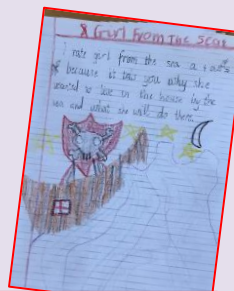 A Girl From The Sea
I rate girl from the sea a out
of because it tow you why she
wanted to live in the house by the
sea and what she will do there.